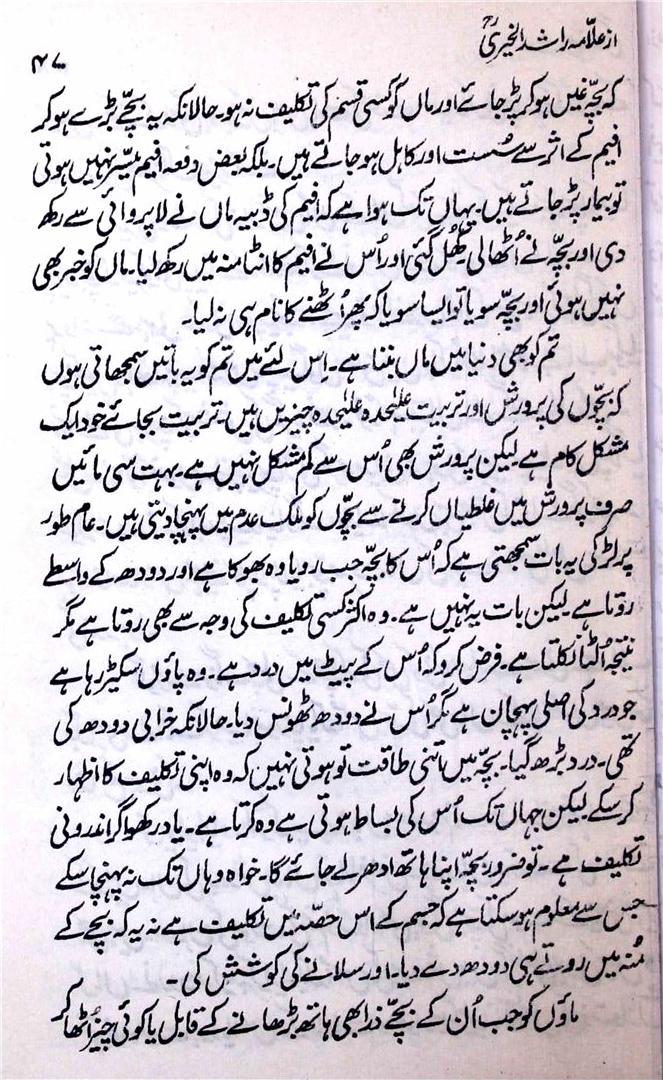 از علامہ راشد الخیریؒ
۴۷
کہ بچّہ غیں ہو کر پڑ جائے اور ماں کو کسی قسم کی تکلیف نہ ہو۔ حالانکہ یہ بچّے بڑے ہو کر
افیم کے اثر سے سُست اور کاہل ہو جاتے ہیں۔ بلکہ بعض دفعہ افیم میسّر نہیں ہوتی
تو بیمار پڑ جاتے ہیں۔ یہاں تک ہوا ہے کہ افیم کی ڈبیہ ماں نے لاپروائی سے رکھ
دی اور بچّہ نے اُٹھا لی کُھل گئی اور اُس نے افیم کا انٹا منہ میں رکھ لیا۔ ماں کو خبر بھی
نہیں ہوئی اور بچّہ سویا تو ایسا سویا کہ پھر اُٹھنے کا نام ہی نہ لیا۔
تم کو بھی دنیا میں ماں بننا ہے۔ اِس لئے میں تم کو یہ باتیں سمجھاتی ہوں
کہ بچّوں کی پرورش اور تربیت علیٰحدہ علیٰحدہ چیزیں ہیں۔ تربیت بجائے خود ایک
مشکل کام ہے لیکن پرورش بھی اُس سے کم مشکل نہیں ہے۔ بہت سی مائیں
صرف پرورش میں غلطیاں کرنے سے بچّوں کو ملک عدم میں پہنچا دیتی ہیں۔ عام طور
پر لڑکی یہ بات سمجھتی ہے کہ اُس کا بچّہ جب رویا وہ بھوکا ہے اور دودھ کے واسطے
روتا ہے۔ لیکن بات یہ نہیں ہے۔ وہ اکثر کسی تکلیف کی وجہ سے بھی روتا ہے مگر
نتیجہ اُلٹا نکلتا ہے۔ فرض کرو کہ اُس کے پیٹ میں درد ہے۔ وہ پاؤں سکیڑ رہا ہے
جو درد کی اصلی پہچان ہے مگر اُس نے دودھ ٹھونس دیا۔ حالانکہ خرابی دودھ کی
تھی۔ درد بڑھ گیا۔ بچّہ میں اتنی طاقت تو ہوتی نہیں کہ وہ اپنی تکلیف کا اظہار
کر سکے لیکن جہاں تک اُس کی بساط ہوتی ہے وہ کرتا ہے۔ یاد رکھو اگر اندرونی
تکلیف ہے۔ تو ضرور بچّہ اپنا ہاتھ ادھر لے جائے گا۔ خواہ وہاں تک نہ پہنچا سکے
جس سے معلوم ہو سکتا ہے کہ جسم کے اس حصّہ میں تکلیف ہے نہ یہ کہ بچّے کے
مُنہ میں روتے ہی دودھ دے دیا۔ اور سلانے کی کوشش کی۔
ماؤں کو جب اُن کے بچّے ذرا بھی ہاتھ بڑھانے کے قابل یا کوئی چیز اُٹھا کر